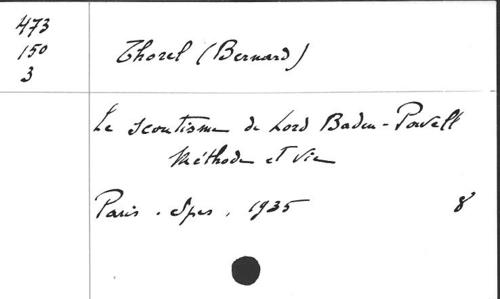 473
150
3
Thorel (Bernard)
Le scoutisme de Lord Baden-Powell
Méthode et vie
Paris . Spes , 1935 8°